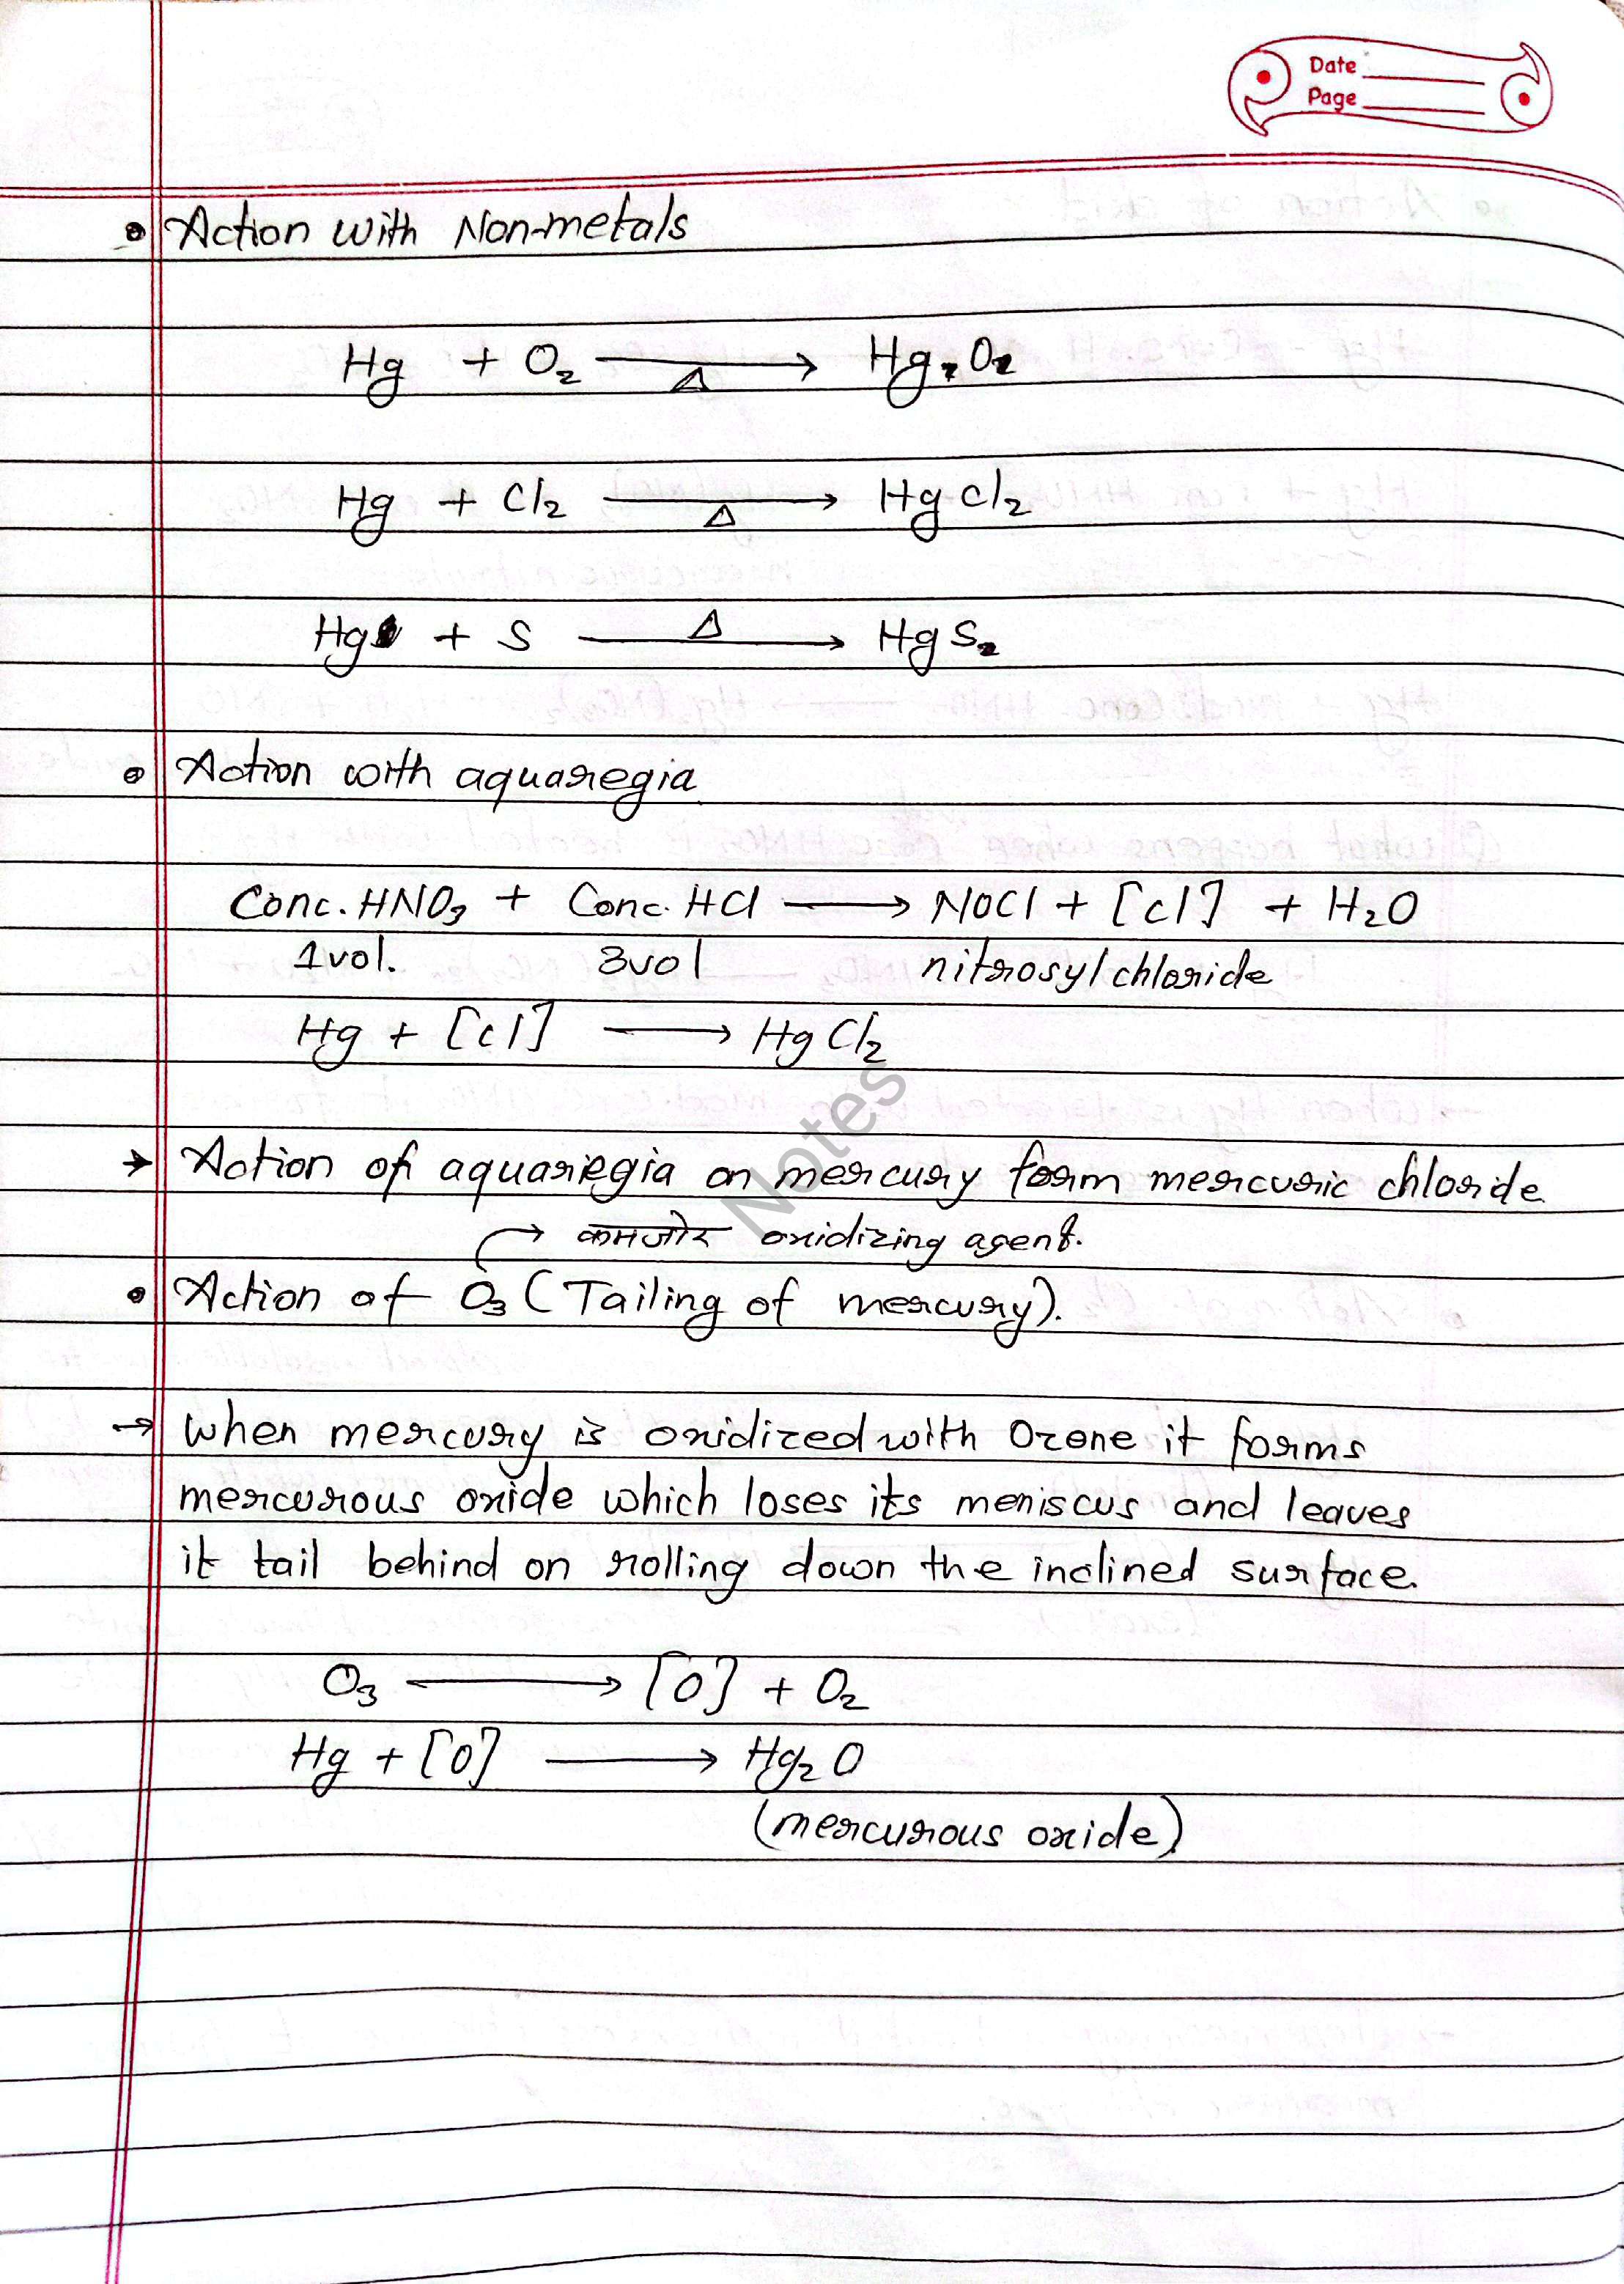 Date
Page
• Action with Non-metals
Hg + O₂ →Δ Hg₂O₂
Hg + Cl₂ →Δ HgCl₂
Hg + S →Δ HgS₂
• Action with aquaregia
Conc. HNO₃ + Conc. HCl → NOCl + [Cl] + H₂O
1vol. 3vol nitrosylchloride
Hg + [Cl] → HgCl₂
→ Action of aquariegia on mercury form mercuric chloride
→ कमजोर oxidizing agent.
• Action of O₃ (Tailing of mercury).
→ When mercury is oxidized with Ozone it forms
mercurous oxide which loses its meniscus and leaves
it tail behind on rolling down the inclined surface.
O₃ → [O] + O₂
Hg + [O] → Hg₂O
(mercurous oxide)
Notes